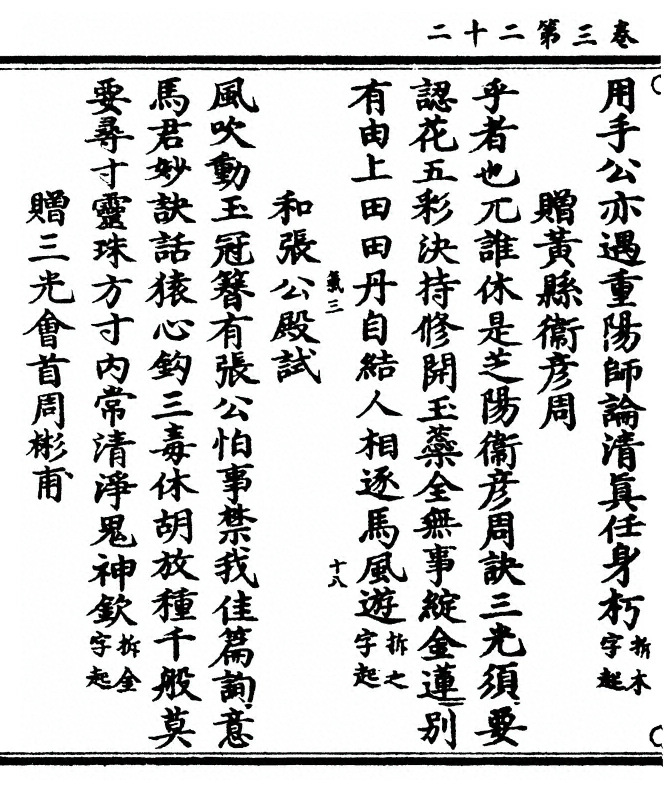 卷三第二十二
用手公亦遇重陽師論清眞任身朽拆木字起
贈黃縣衞彥周
乎者也兀誰休是芝陽衞彥周訣三光須要
認花五彩決持修開玉蘂全無事綻金蓮別
有由上田田丹自結人相逐馬風遊拆之字起
氣三
十八
和張公殿試
風吹動玉冠簪有張公怕事禁我佳篇詢意
馬君妙訣話猿心鈎三毒休胡放種千般莫
要尋寸靈珠方寸內常清淨鬼神欽拆全字起
贈三光會首周彬甫